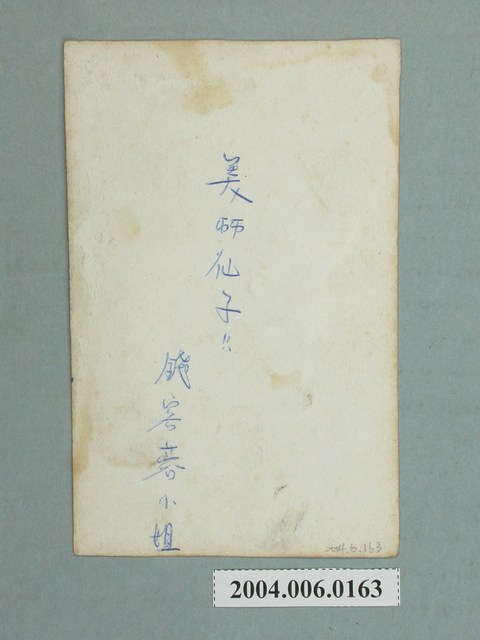 美師化子!!
錢蓉蓉小姐
2004.6.163
2004.006.0163